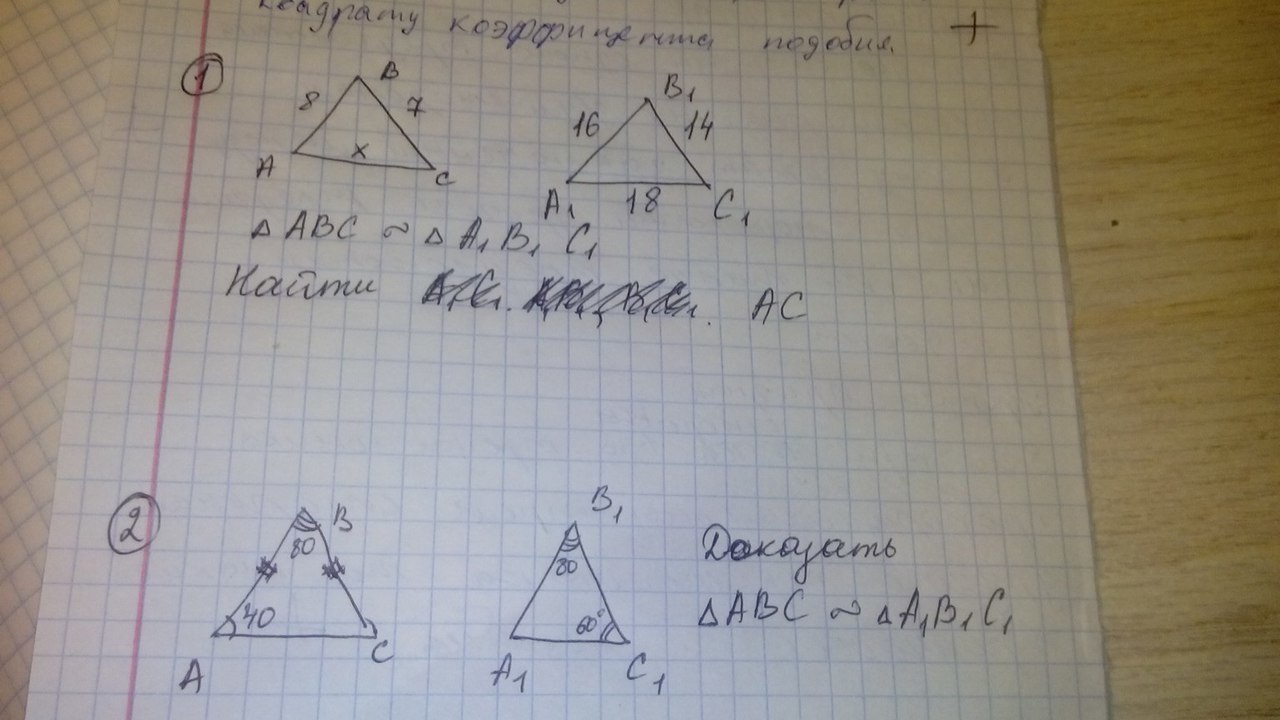 квадрату коэффициента подобия. +
1
B
8 7
A x C
B1
16 14
A1 18 C1
△ABC ~ △A1B1C1
Найти AC
2
B
80
40
A C
B1
80
60°
A1 C1
Доказать
△ABC ~ △A1B1C1